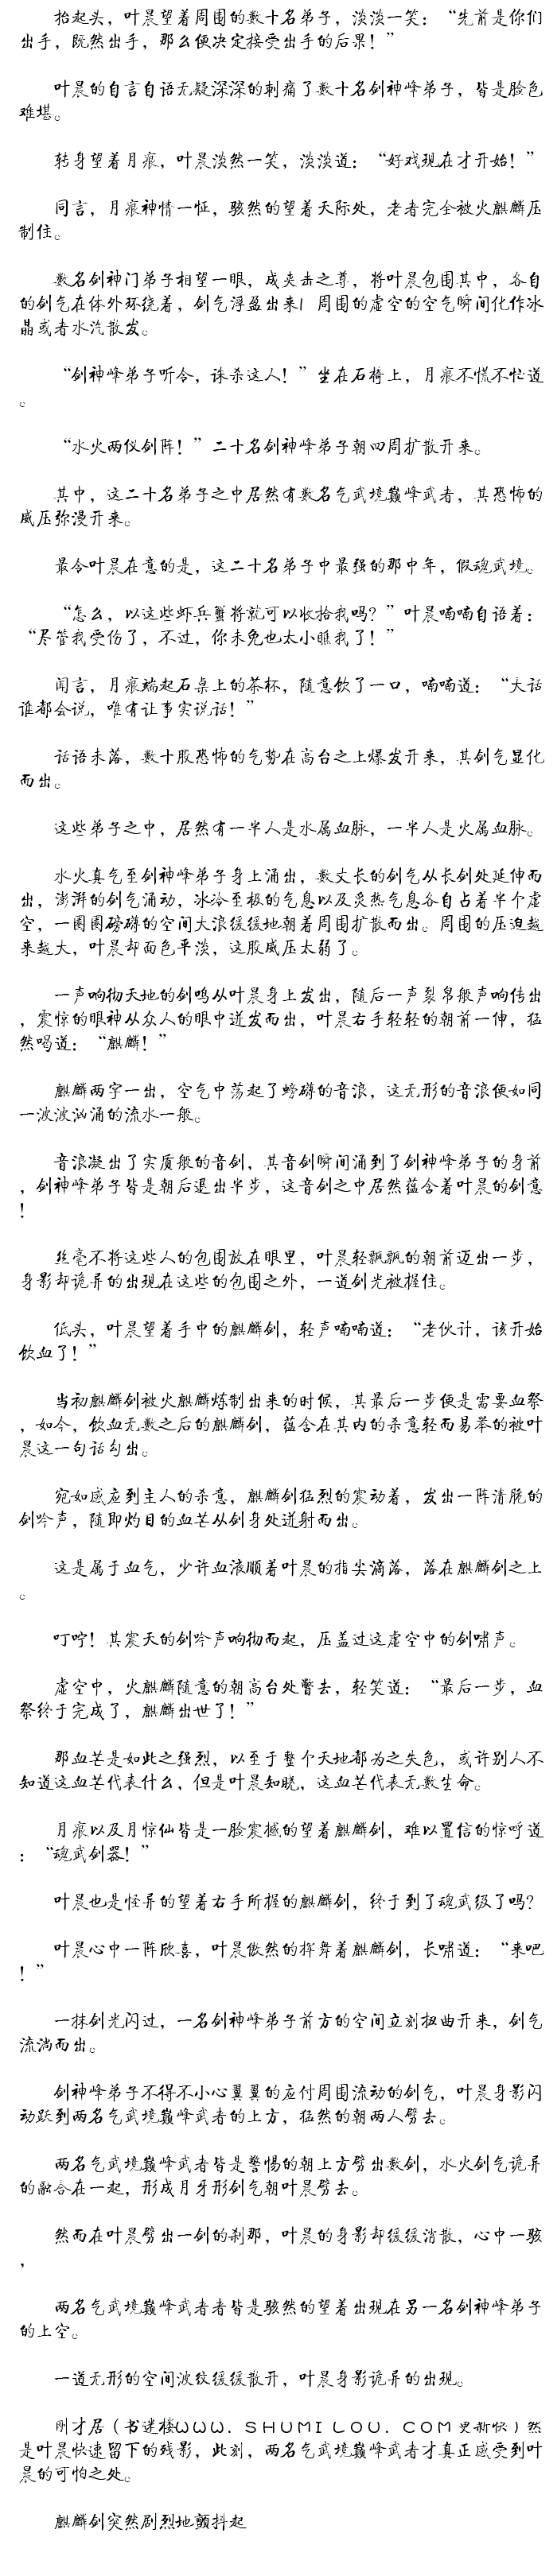 抬起头，叶晨望着周围的数十名弟子，淡淡一笑：“先前是你们
出手，既然出手，那么便决定接受出手的后果！”
叶晨的自言自语无疑深深的刺痛了数十名剑神峰弟子，皆是脸色
难堪。
转身望着月痕，叶晨淡然一笑，淡淡道：“好戏现在才开始！”
同言，月痕神情一怔，骇然的望着天际处，老者完全被火麒麟压
制住。
数名剑神门弟子相望一眼，成夹击之尊，将叶晨包围其中，各自
的剑气在体外环绕着，剑气浮盈出来！周围的虚空的空气瞬间化作冰
晶或者水汽散发。
“剑神峰弟子听令，诛杀这人！”坐在石椅上，月痕不慌不忙道
。
“水火两仪剑阵！”二十名剑神峰弟子朝四周扩散开来。
其中，这二十名弟子之中居然有数名气武境巅峰武者，其恐怖的
威压弥漫开来。
最令叶晨在意的是，这二十名弟子中最强的那中年，假魂武境。
“怎么，以这些虾兵蟹将就可以收拾我吗？”叶晨喃喃自语着：
“尽管我受伤了，不过，你未免也太小瞧我了！”
闻言，月痕端起石桌上的茶杯，随意饮了一口，喃喃道：“大话
谁都会说，唯有让事实说话！”
话语未落，数十股恐怖的气势在高台之上爆发开来，其剑气显化
而出。
这些弟子之中，居然有一半人是水属血脉，一半人是火属血脉。
水火真气至剑神峰弟子身上涌出，数丈长的剑气从长剑处延伸而
出，澎湃的剑气涌动，冰冷至极的气息以及炙热气息各自占着半个虚
空，一圈圈磅礴的空间大浪缓缓地朝着周围扩散而出。周围的压迫越
来越大，叶晨却面色平淡，这股威压太弱了。
一声响彻天地的剑鸣从叶晨身上发出，随后一声裂帛般声响传出
，震惊的眼神从众人的眼中迸发而出，叶晨右手轻轻的朝前一伸，猛
然喝道：“麒麟！”
麒麟两字一出，空气中荡起了螃礴的音浪，这无形的音浪便如同
一波波汹涌的流水一般。
音浪凝出了实质般的音剑，其音剑瞬间涌到了剑神峰弟子的身前
，剑神峰弟子皆是朝后退出半步，这音剑之中居然蕴含着叶晨的剑意
！
丝毫不将这些人的包围放在眼里，叶晨轻飘飘的朝前迈出一步，
身影却诡异的出现在这些的包围之外，一道剑光被握住。
低头，叶晨望着手中的麒麟剑，轻声喃喃道：“老伙计，该开始
饮血了！”
当初麒麟剑被火麒麟炼制出来的时候，其最后一步便是需要血祭
，如今，饮血无数之后的麒麟剑，蕴含在其内的杀意轻而易举的被叶
晨这一句话勾出。
宛如感应到主人的杀意，麒麟剑猛烈的震动着，发出一阵清脆的
剑吟声，随即灼目的血芒从剑身处迸射而出。
这是属于血气，少许血液顺着叶晨的指尖滴落，落在麒麟剑之上
。
叮咛！其震天的剑吟声响彻而起，压盖过这虚空中的剑啸声。
虚空中，火麒麟随意的朝高台处瞥去，轻笑道：“最后一步，血
祭终于完成了，麒麟出世了！”
那血芒是如此之强烈，以至于整个天地都为之失色，或许别人不
知道这血芒代表什么，但是叶晨知晓，这血芒代表无数生命。
月痕以及月惊仙皆是一脸震撼的望着麒麟剑，难以置信的惊呼道
：“魂武剑器！”
叶晨也是怪异的望着右手所握的麒麟剑，终于到了魂武级了吗？
叶晨心中一阵欣喜，叶晨傲然的挥舞着麒麟剑，长啸道：“来吧
！”
一抹剑光闪过，一名剑神峰弟子前方的空间立刻扭曲开来，剑气
流淌而出。
剑神峰弟子不得不小心翼翼的应付周围流动的剑气，叶晨身影闪
动跃到两名气武境巅峰武者的上方，猛然的朝两人劈去。
两名气武境巅峰武者皆是警惕的朝上方劈出数剑，水火剑气诡异
的融合在一起，形成月牙形剑气朝叶晨劈去。
然而在叶晨劈出一剑的刹那，叶晨的身影却缓缓消散，心中一骇
，
两名气武境巅峰武者者皆是骇然的望着出现在另一名剑神峰弟子
的上空。
一道无形的空间波纹缓缓散开，叶晨身影诡异的出现。
刚才居（书迷楼WWW．SHUMILOU．COM更新快）然
是叶晨快速留下的残影，此刻，两名气武境巅峰武者才真正感受到叶
晨的可怕之处。
麒麟剑突然剧烈地颤抖起